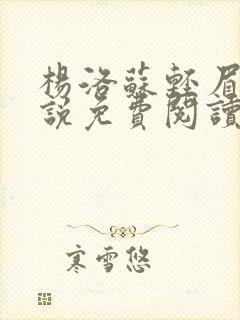 楊洛蘇輕眉
說免費閱讀
寒雪悠